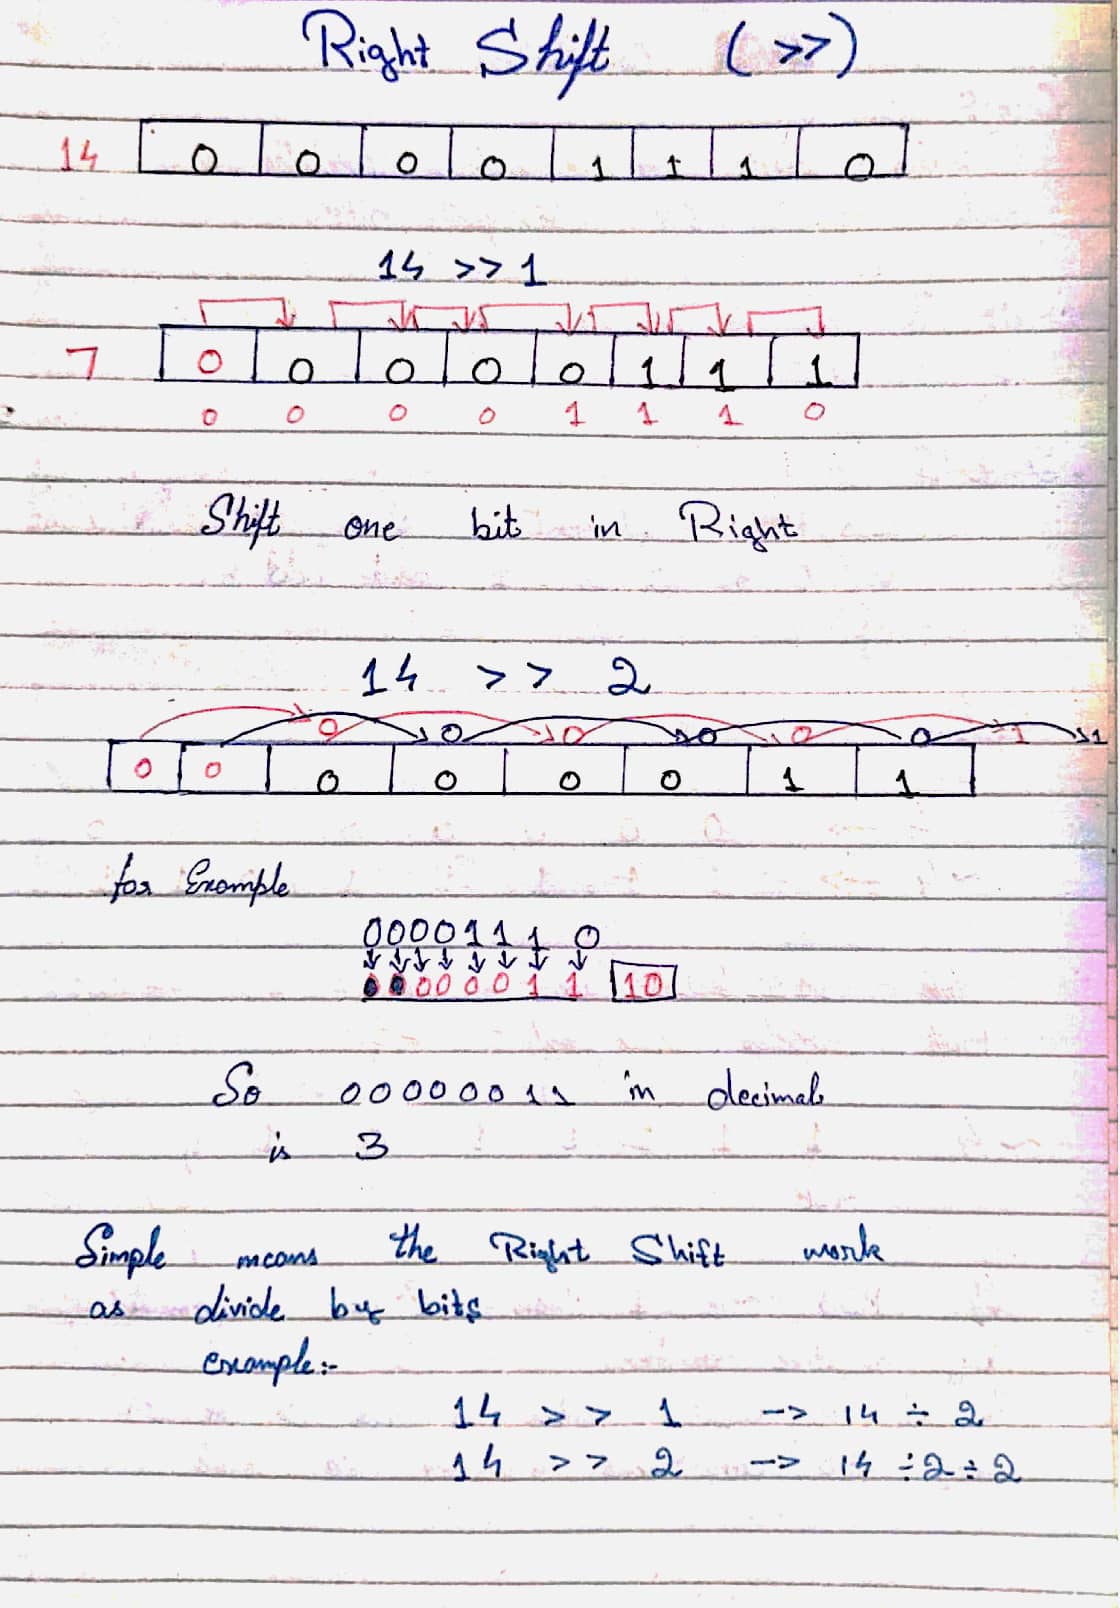 Right Shift (>>)
14 0 0 0 0 1 1 1 0
14 >> 1
7 0 0 0 0 0 1 1 1
0 0 0 0 1 1 1 0
Shift one bit in Right
14 >> 2
0 0 0 0 0 0 1 1
0 0 0 0 0 0 1 1
for Example
00001110
00000011 10
So 00000011 in decimal
is 3
Simple means the Right Shift work
as divide by bits
example:-
14 >> 1 -> 14 ÷ 2
14 >> 2 -> 14 ÷ 2 ÷ 2